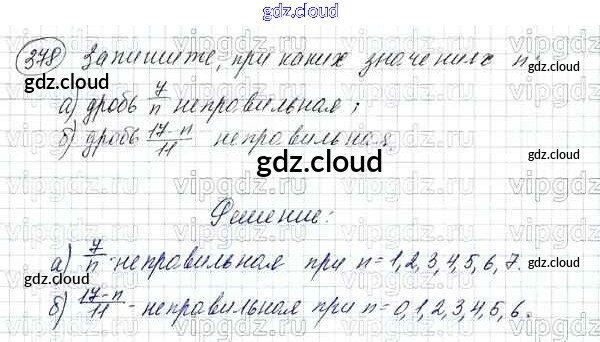 gdz.cloud
378 Запишите, при каких значениях n:
gdz.cloud gdz.cloud
а) дробь 7/n неправильная;
б) дробь 17-n/11 неправильная.
gdz.cloud
Решение:
а) 7/n - неправильная при n = 1, 2, 3, 4, 5, 6, 7.
gdz.cloud gdz.cloud
б) 17-n/11 - неправильная при n = 0, 1, 2, 3, 4, 5, 6.